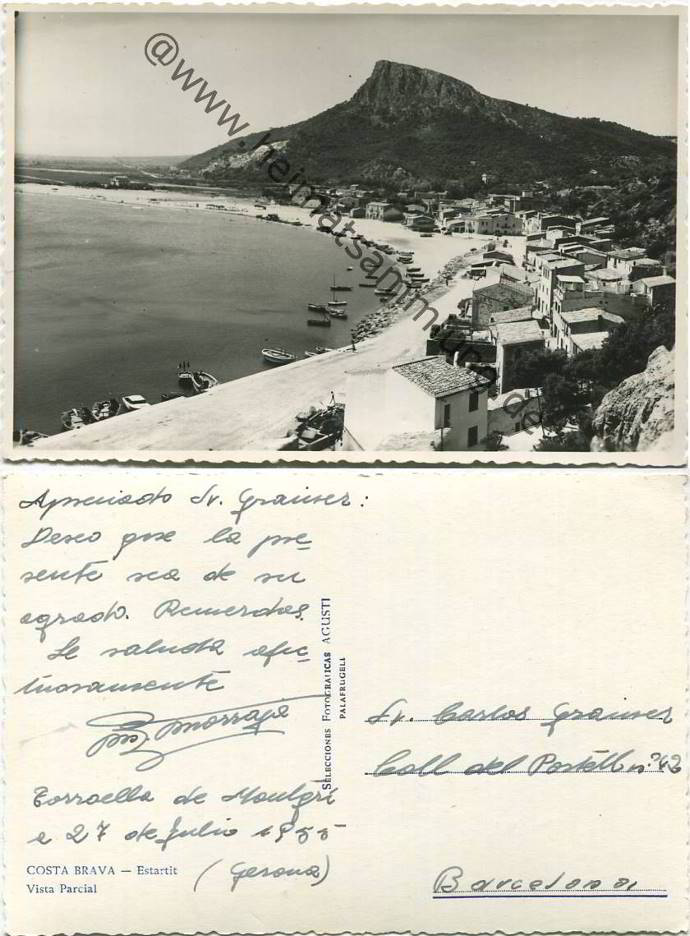 @www.heimatsammlung.de
Apreciado Sr. Grauser:
Deseo que la pre-
sente sea de su
agrado. Recuerdos.
Le saluda afec-
tuosamente
Torroella de Montgrí
a 27 de Julio 1955
(Gerona)
COSTA BRAVA — Estartit
Vista Parcial
SELECCIONES FOTOGRAFICAS AGUSTI
PALAFRUGELL
Sr. Carlos Grauser
Coll del Portell nº 42
Barcelona